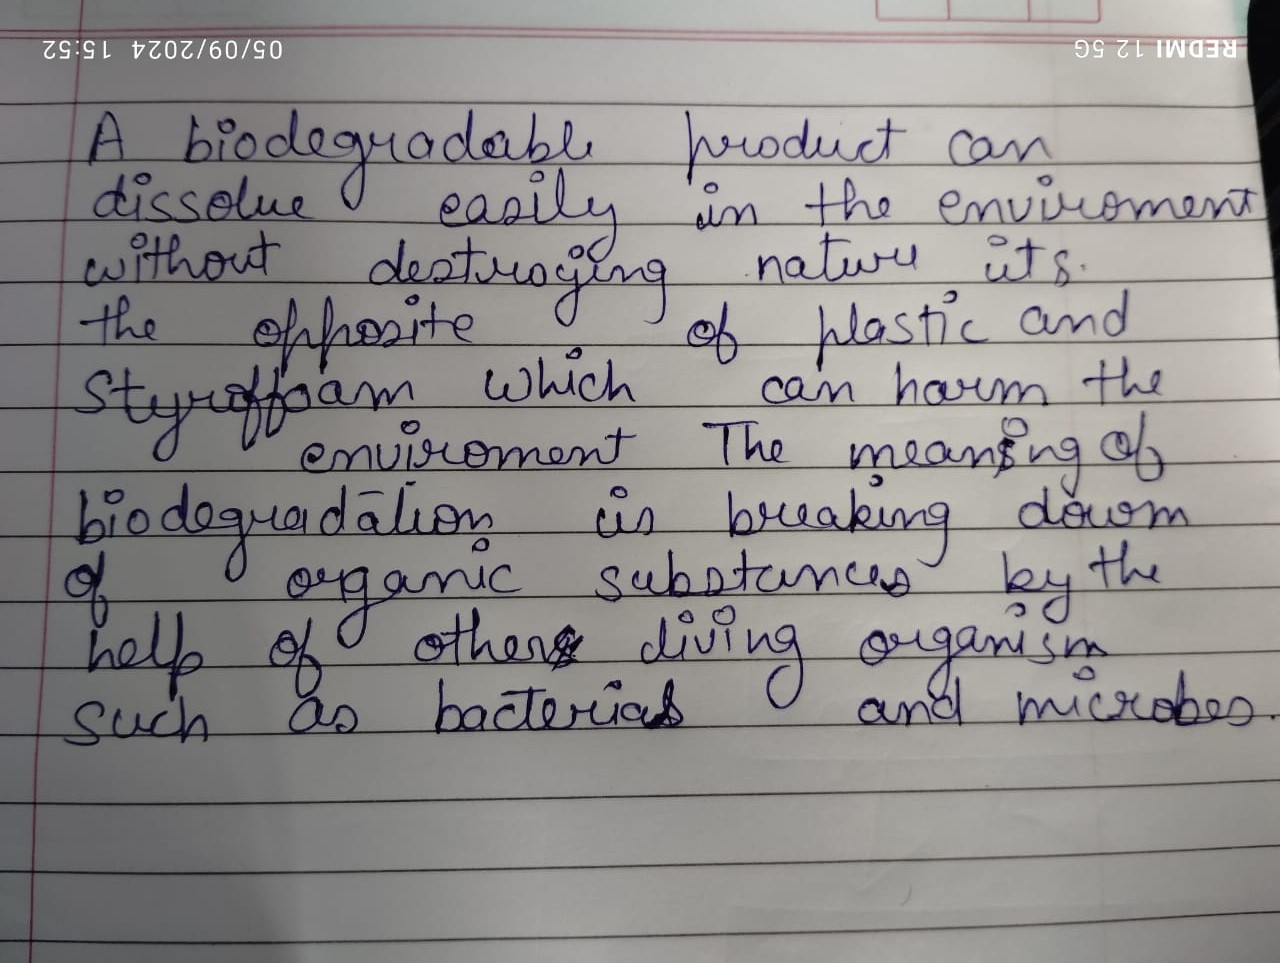 05/09/2024 15:52
REDMI 12 5G
A biodegradable product can
dissolve easily in the enviroment
without destroying nature its.
the opposite of plastic and
Styroffoam which can harm the
enviroment The meaning of
biodegradation is breaking down
of organic substances by the
help of others living organism
such as bacterias and microbes.